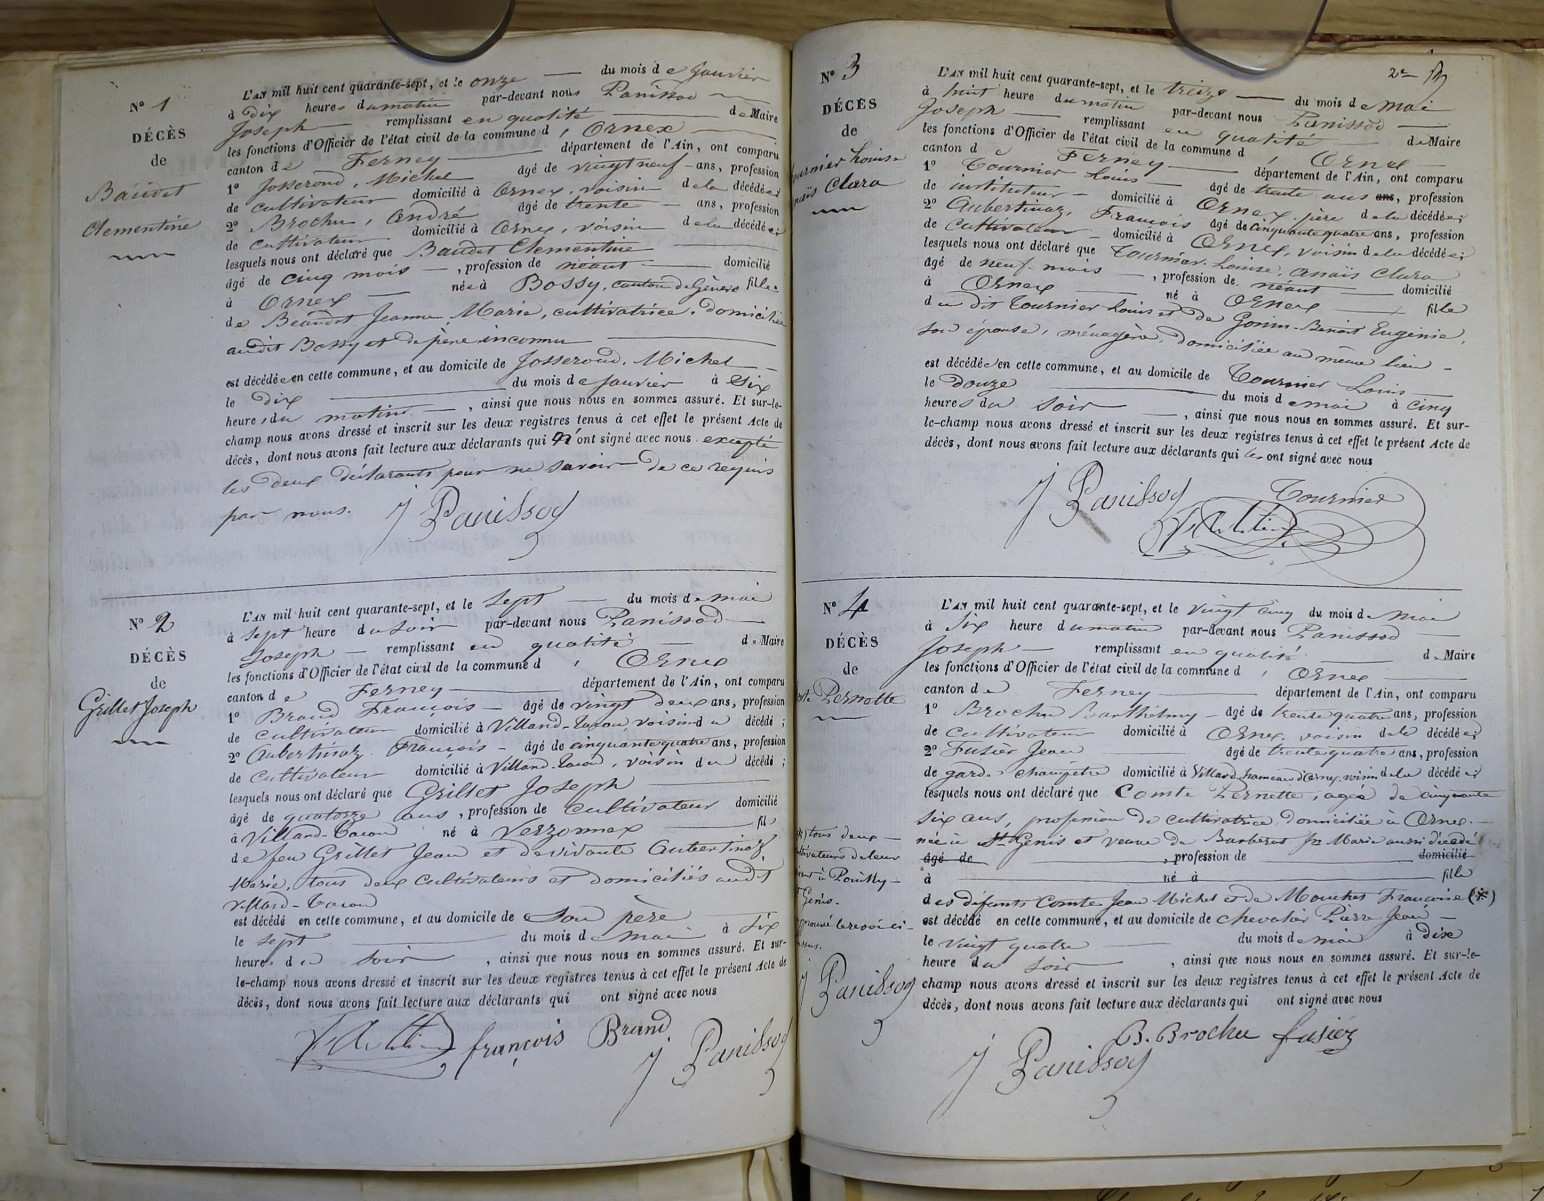 N° 1
DÉCÈS
de
Baudet
Clementine
L'AN mil huit cent quarante-sept, et le onze du mois de Janvier
à Dix heures du matin par-devant nous Panissod
Joseph remplissant en qualité de Maire
les fonctions d'Officier de l'état civil de la commune d' Ornex
canton de Ferney département de l'Ain, ont comparu
1° Josserond, Michel âgé de vingt neuf ans, profession
de cultivateur domicilié à Ornex, voisin de la décédée;
2° Brochu, André âgé de trente ans, profession
de cultivateur domicilié à Ornex, voisin de la décédée;
lesquels nous ont déclaré que Baudet Clementine
âgé de cinq mois, profession de néant domicilié
à Ornex née à Bossy, canton de Genève fille
de Beaudet Jeanne Marie, cultivatrice, domiciliée
audit Bossy et de père inconnu
est décédée en cette commune, et au domicile de Josserond, Michel
le dix du mois de Janvier à Six
heures du matin, ainsi que nous nous en sommes assuré. Et sur-le-
champ nous avons dressé et inscrit sur les deux registres tenus à cet effet le présent Acte de
décès, dont nous avons fait lecture aux déclarants qui n'ont signé avec nous excepté
les deux déclarants pour ne savoir de ce requis
par nous.
J Panissod
N° 2
DÉCÈS
de
Grillet Joseph
L'AN mil huit cent quarante-sept, et le Sept du mois de mai
à Sept heure du Soir par-devant nous Panissod
Joseph remplissant en qualité de Maire
les fonctions d'Officier de l'état civil de la commune d' Ornex
canton de Ferney département de l'Ain, ont comparu
1° Brand François âgé de vingt deux ans, profession
de cultivateur domicilié à Villard-Tacon, voisin du décédé;
2° Aubertinaz François âgé de cinquante quatre ans, profession
de cultivateur domicilié à Villard-Tacon, voisin du décédé;
lesquels nous ont déclaré que Grillet Joseph
âgé de quatorze ans, profession de cultivateur domicilié
à Villard-Tacon né à Verzonnex fil
de feu Grillet Jean et de vivante Aubertinaz
Marie, tous deux cultivateurs et domiciliés audit
Villard-Tacon
est décédé en cette commune, et au domicile de Son père
le Sept du mois de mai à Six
heures du Soir, ainsi que nous nous en sommes assuré. Et sur-
le-champ nous avons dressé et inscrit sur les deux registres tenus à cet effet le présent Acte de
décès, dont nous avons fait lecture aux déclarants qui ont signé avec nous
françois Brand
J Panissod
2
N° 3
DÉCÈS
de
Tournier Louise
Anaïs Clara
L'AN mil huit cent quarante-sept, et le treize du mois de mai
à huit heure du matin par-devant nous Panissod
Joseph remplissant en qualité de Maire
les fonctions d'Officier de l'état civil de la commune d' Ornex
canton de Ferney département de l'Ain, ont comparu
1° Tournier Louis âgé de trente ans ans, profession
de instituteur domicilié à Ornex, père de la décédée;
2° Aubertinaz, François âgé de cinquante quatre ans, profession
de Cultivateur domicilié à Ornex, voisin de la décédée;
lesquels nous ont déclaré que Tournier Louise, anaïs Clara
âgé de neuf mois, profession de néant domicilié
à Ornex né à Ornex fille
du dit Tournier Louis et de Benoit Eugénie,
son épouse, ménagère, domiciliée au même lieu
est décédée en cette commune, et au domicile de Tournier Louis
le douze du mois de mai à cinq
heures du Soir, ainsi que nous nous en sommes assuré. Et sur-
le-champ nous avons dressé et inscrit sur les deux registres tenus à cet effet le présent Acte de
décès, dont nous avons fait lecture aux déclarants qui les ont signé avec nous
J Panissod Tournier
N° 4
DÉCÈS
de
Pernette
L'AN mil huit cent quarante-sept, et le vingt cinq du mois de mai
à Six heure du matin par-devant nous Panissod
Joseph remplissant en qualité de Maire
les fonctions d'Officier de l'état civil de la commune d' Ornex
canton de Ferney département de l'Ain, ont comparu
1° Brochu Barthélmy âgé de trente quatre ans, profession
de cultivateur domicilié à Ornex, voisin de la décédée;
2° Fusier Jean âgé de trente quatre ans, profession
de garde champêtre domicilié à Villard hameau d'Ornex, voisin de la décédée;
lesquels nous ont déclaré que Comte Pernette, agée de cinquante
six ans, profession de cultivatrice domiciliée à Ornex.
née à St Genis et veuve de Barberat fs Marie aussi décédé
âgé de , profession de domicilié
à né à fille
des défunts Comte Jean Michel et de Mouchet Francoise (*)
est décédé en cette commune, et au domicile de Chevalier Pierre Jean
le vingt quatre du mois de mai à dix
heure du soir, ainsi que nous nous en sommes assuré. Et sur-le-
champ nous avons dressé et inscrit sur les deux registres tenus à cet effet le présent Acte de
décès, dont nous avons fait lecture aux déclarants qui ont signé avec nous
B. Brochu fusiez
J Panissod
tous deux
cultivateurs de leur
à Pouilly
Genis.
J Panissod